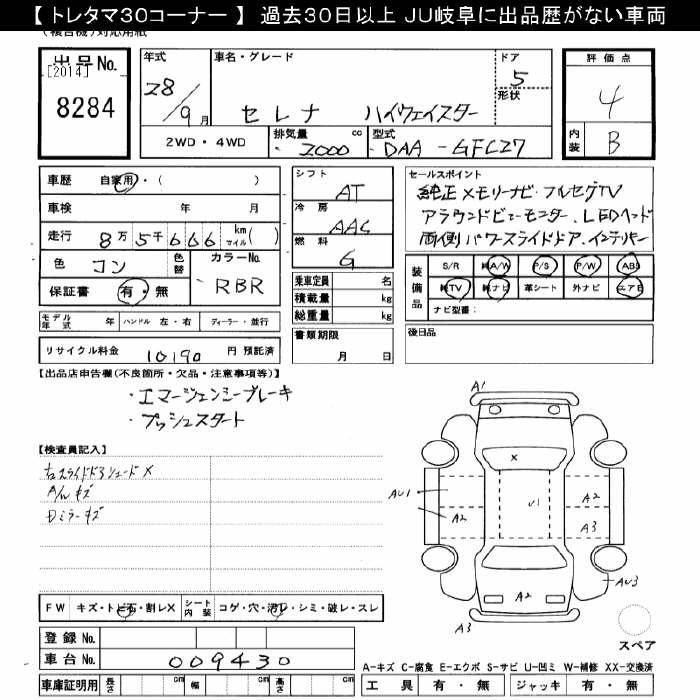 【 トレタマ30コーナー 】 過去30日以上 JU岐阜に出品歴がない車両
出品No.
[2014]
8284
年式
28/9月
車名・グレード
セレナ ハイウェイスター
ドア
5
形状
2WD・4WD
排気量 cc
2000
型式
DAA-GFC27
評価点
4
内装
B
車歴 自家用・( )
車検 年 月
走行 8万5千666 km マイル( )
色 コン
色替
カラーNo.
RBR
保証書 有・無
モデル年式 年 ハンドル 左・右 ディーラー・並行
リサイクル料金 10190 円 預託済
シフト
AT
冷房
AAC
燃料
G
乗車定員 名
積載量 kg
総重量 kg
書類期限
月 日
セールスポイント
純正メモリーナビ・フルセグTV
アラウンドビューモニター、LEDヘッド
両側パワースライドドア、インテリキー
装備品
S/R 純A/W P/S P/W ABS
純TV 純ナビ 革シート 外ナビ エアB
ナビ型番：
後日品
【出品店申告欄(不良箇所・欠品・注意事項等)】
・エマージェンシーブレーキ
・プッシュスタート
【検査員記入】
右スライドドアシェード×
A/W キズ
Dミラーキズ
A1
X
AU1
A2
U1
A2
A3
A2
AU3
A3
スペア
FW キズ・トビ石・割レX
シート内装 コゲ・穴・汚レ・シミ・破レ・スレ
登録No.
車台No. 009430
車庫証明用 長さ cm 幅 cm 高さ cm
A-キズ C-腐食 E-エクボ S-サビ U-凹ミ W-補修 XX-交換済
工具 有・無 ジャッキ 有・無